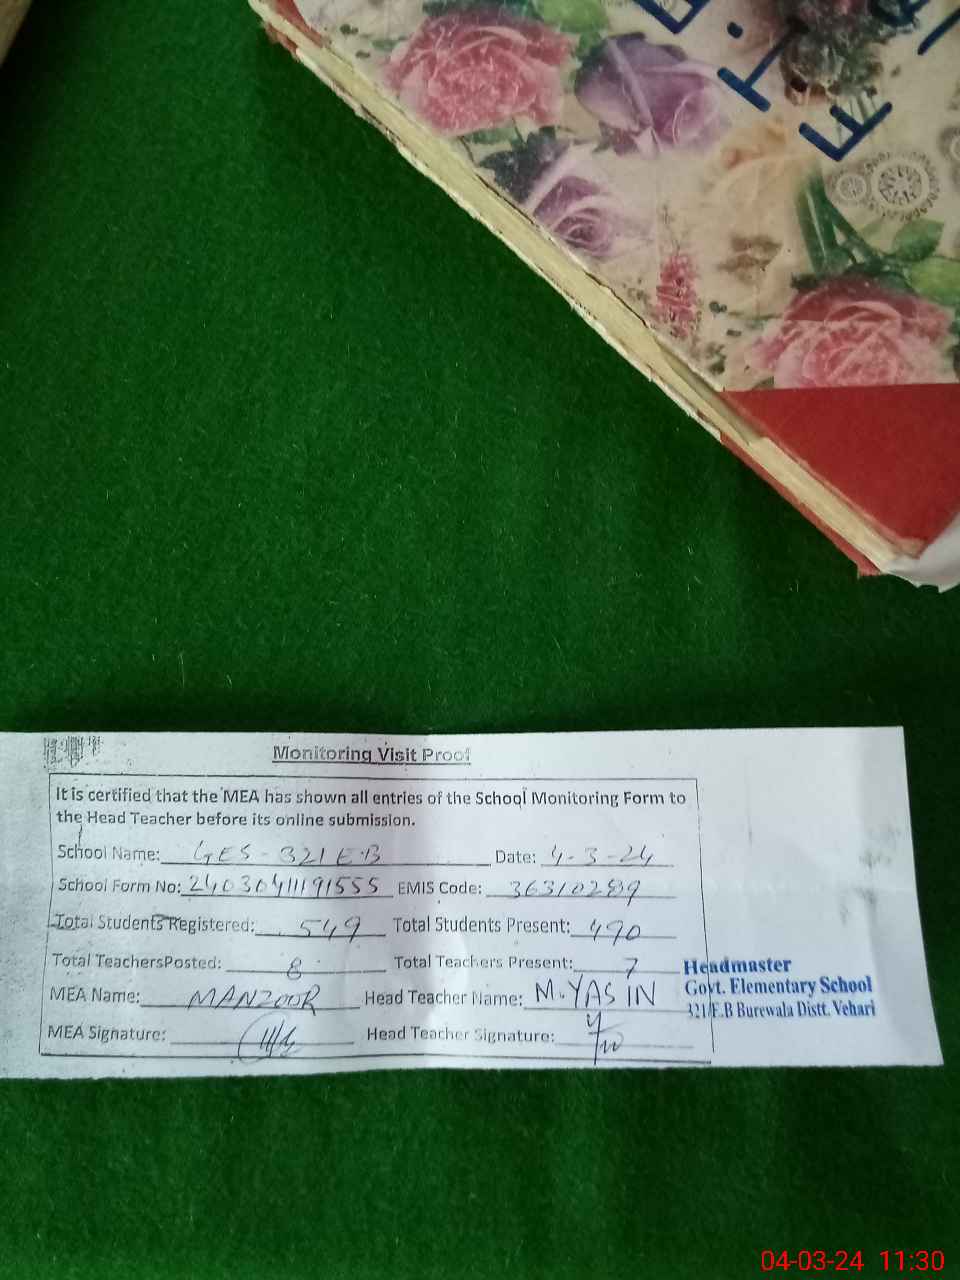 Monitoring Visit Proof
It is certified that the MEA has shown all entries of the School Monitoring Form to
the Head Teacher before its online submission.
School Name: GES - 321 E.B Date: 4-3-24
School Form No: 24030411191555 EMIS Code: 36310289
Total Students Registered: 549 Total Students Present: 490
Total TeachersPosted: 8 Total Teachers Present: 7
MEA Name: MANZOOR Head Teacher Name: M.YASIN
MEA Signature: Head Teacher Signature:
Headmaster
Govt. Elementary School
321/E.B Burewala Distt. Vehari
04-03-24 11:30